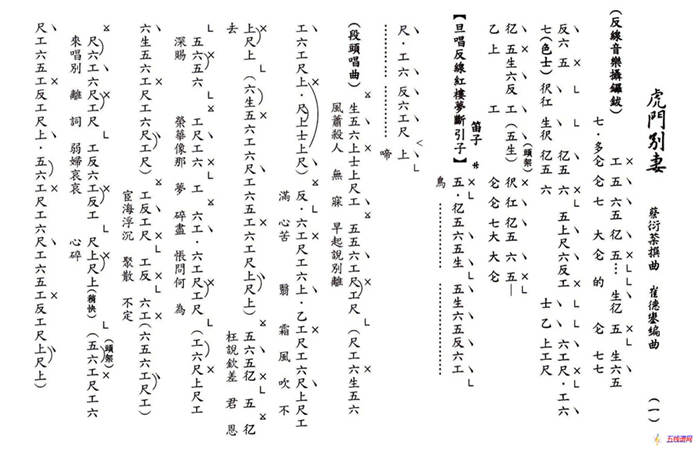 虎門別妻 蔡衍棻撰曲 崔德鑾編曲 (一)
(反線音樂攝鑼鈸) 工 五六五 伬…生伬 五 生六五
七·多仑仑 七 大 仑 的 仑 七 七
反六 五 伬五六 五上尺六反工 六工尺·工六
七(色士)伬仜生伬 伬五 六 士 乙 上 工尺
伬 五生六反 工 (五生) 伬仜 伬五 六 五—
乙 上 工 (頭架) 仑仑七大大仑
笛子 サ 五·伬五六五生 五生六五反六工
【旦唱反線紅樓夢斷引子】 鳥
尺·工六 反六工尺 上
啼
(段頭唱曲) 生五六上士上尺工 五五六工尺工尺 (尺工六生五六
風蕭殺人 無寐 早起說別離
工六工尺上·尺上士上尺) 反·六工尺工六上·乙工尺工六尺上尺工
滿 心苦 翳 霜 風 吹 不
上尺上 (六生五六工六尺工六五工六工尺上尺上) 五六五伬 五 伬
去 枉說欽差 君 恩
五六五六 工尺工六 工 六工·六工尺工尺 (工六尺上尺工
深賜 榮華像那 夢 碎盡 悵問何 為
六生五六工尺工六尺工尺) 工反工尺 工反 六工(六五六工尺工)
宦海浮沉 聚散 不定
尺六工六尺工尺 工反六工反工 尺上尺上(稍快) (頭架) (五六工尺工六
來唱別 離 詞 弱婦哀哀 心碎
尺工六五工反工尺上·五六工尺工六尺工六五工反工尺上尺上)
五线谱网